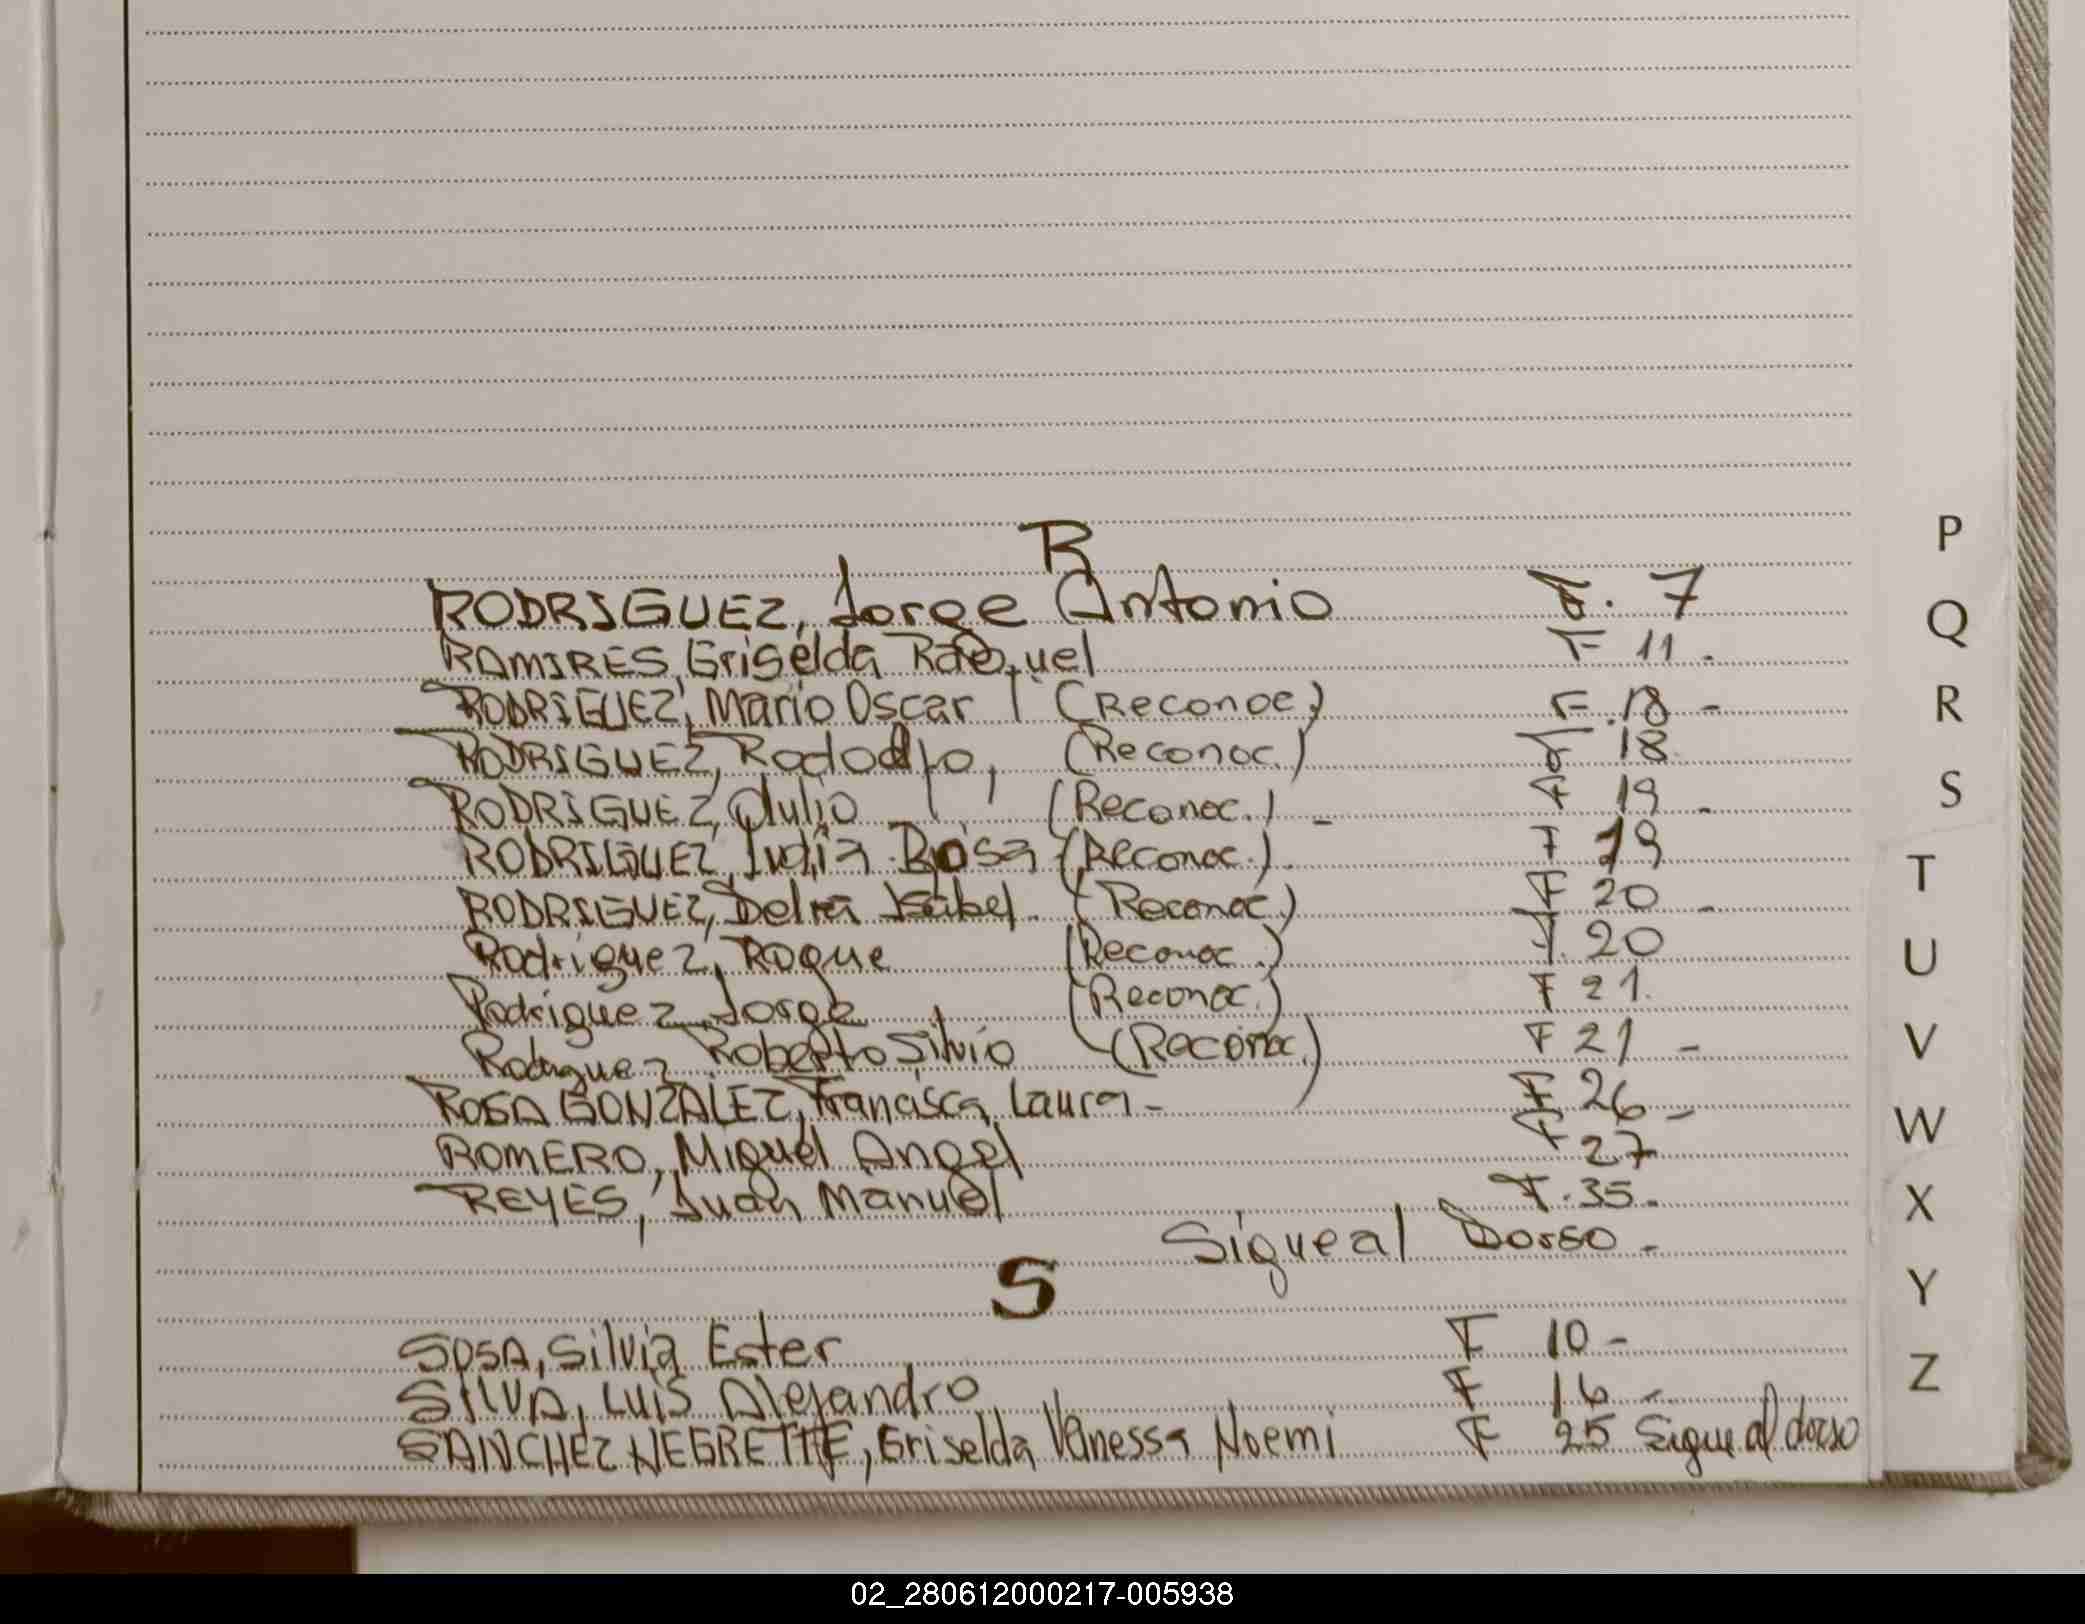 R
RODRIGUEZ, Jorge Antonio F. 7
RAMIRES, Griselda Raquel F 11.
RODRIGUEZ, Mario Oscar (Reconoc.) F. 18 -
RODRIGUEZ, Rodolfo, (Reconoc.) F 18.
RODRIGUEZ, Julio (Reconoc.) - F 19 -
RODRIGUEZ, India Rosa (Reconoc.). F 19
RODRIGUEZ, Delia Isabel. (Reconoc.) F 20 -
Rodriguez, Roque (Reconoc.) F. 20
Rodriguez Jorge (Reconoc.) F 21.
Rodriguez Roberto Silvio (Reconoc.) F 21 -
ROSA GONZALEZ, Francisca Laura - F 26 -
ROMERO, Miguel Angel F 27
REYES, Juan Manuel F. 35 -
Sigue al Dorso -
S
SOSA, Silvia Ester F 10 -
SILVA, LUIS Alejandro F 16 -
SANCHEZ NEGRETTE, Griselda Vanessa Noemi F 25 Sigue al dorso
P
Q
R
S
T
U
V
W
X
Y
Z
02_280612000217-005938